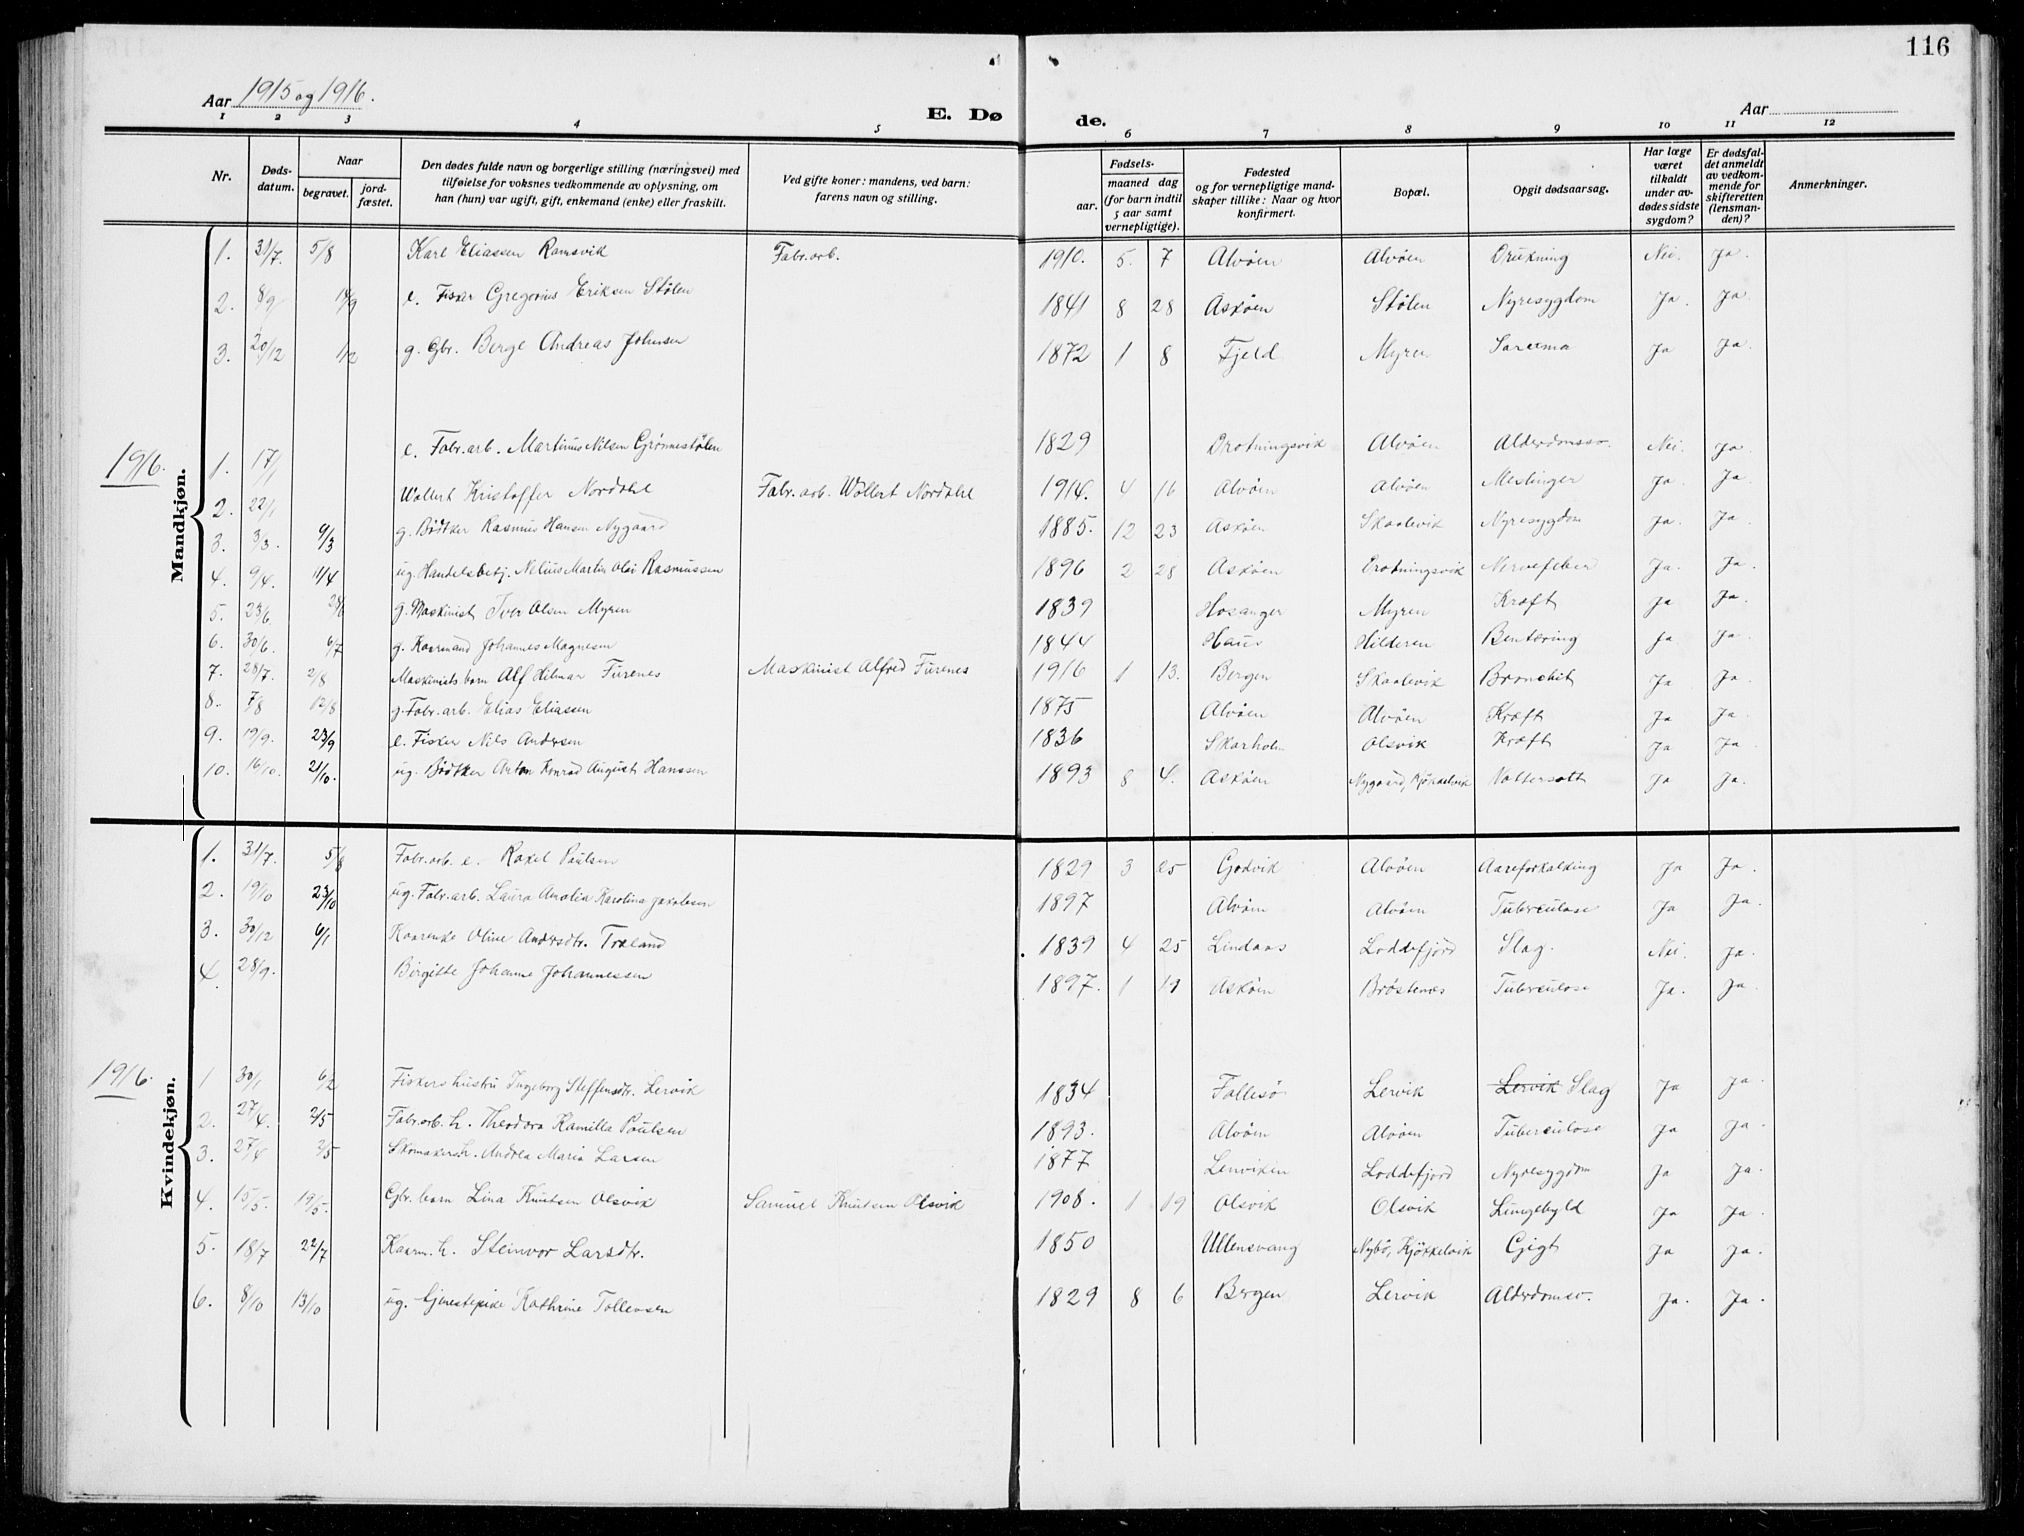 116
Aar 1915 og 1916.
E. Døde.
Aar
1 2 3 4 5 6 7 8 9 10 11 12
Nr.
Døds-datum.
Naar
begravet.
jord-fæstet.
Den dødes fulde navn og borgerlige stilling (næringsvei) med
tilføielse for voksnes vedkommende av oplysning, om
han (hun) var ugift, gift, enkemand (enke) eller fraskilt.
Ved gifte koner: mandens, ved barn:
farens navn og stilling.
Fødsels-
aar.
maaned dag
(for barn indtil
5 aar samt
vernepligtige).
Fødested
og for vernepligtige mand-
skaper tillike: Naar og hvor
konfirmert.
Bopæl.
Opgit dødsaarsag.
Har læge
været
tilkaldt
under av-
dødes sidste
sygdom?
Er dødsfal-
det anmeldt
av vedkom-
mende for
skifteretten
(lensman-
den)?
Anmerkninger.
Mandkjøn.
1. 31/7. 5/8 Karl Eliassen Ramsvik Fabr.arb. 1910. 5. 7 Alvøen Alvøen Drukning Nei. Ja.
2. 8/9 14/9 e. Fisker Gregorius Eriksen Stølen 1841 8 28 Askøen Stølen Nyresygdom Ja. Ja
3. 20/12 g. Gbr. Berge Andreas Johnsen 1872 1 8 Fjeld Myren Sarcoma Ja Ja.
1916.
1. 17/1 e. Fabr.arb. Martinus Nilsen Grønnestølen 1829 Drotningsvik Alvøen Alderdomssv. Nei. Ja
2. 22/1 Wollert Kristoffer Nordahl Fabr.arb. Wollert Nordahl 1914. 4 16 Alvøen Alvøen Meslinger Ja. Ja.
3. 3/3. 9/3 g. Bødtker Rasmus Hansen Nygaard 1885. 12 23 Askøen Skaalevik Nyresygdom Ja. Ja
4. 9/4. 14/4 ug. Handelsbetj. Nelius Martin Olai Rasmussen 1896 2 28 Askøen Drotningsvik Nervefeber Ja. Ja.
5. 23/6. 28/6 g. Maskinist Iver Olsen Myren 1839 Hosanger Myren Kræft Ja Ja.
6. 30/6. 6/7 g. Kaarmand Johannes Magnesen 1844 Haus Hilderen Bentæring Ja Ja.
7. 28/7. 2/8 Maskinists barn Alf Hilmar Furenes Maskinist Alfred Furenes 1916 1 13. Bergen Skaalevik Bronchit Ja Ja.
8. 7/8 12/8 g. Fabr.arb. Elias Eliassen 1875 Alvøen Alvøen Kræft Ja Ja.
9. 19/9. 23/9 e. Fisker Nils Andersen 1836 Skarholm Olsvik Kræft Ja Ja.
10. 16/10. 21/10. ug. Bødtker Anton Konrad August Hanssen 1893 8 4. Askøen Nygaard, Kjøkkelvik Vattersott Ja Ja.
Kvindekjøn.
1. 31/7. 5/8 Fabr.arb. e. Rakel Poulsen 1829 3 25 Godvik Alvøen Aareforkalkning Ja Ja.
2. 19/10 23/10 ug. Fabr.arb. Laura Amalia Karolina Jakobsen 1897 Alvøen Alvøen Tuberculose Ja Ja.
3. 30/12 6/1 Kaarenke Oline Andersdtr. Træland 1839 4 25 Lindaas Loddefjord Slag. Nei. Ja.
4. 28/9. Birgitte Johanne Johannessen 1897. 1 19 Askøen Brøstenes Tuberculose Ja. Ja.
1916.
1 30/1 6/2 Fiskers hustru Ingeborg Steffensdtr. Lervik 1834 Follesø Lervik Lervik Slag Ja Ja.
2. 27/4. 2/5 Fabr.arb. h. Theodora Kamilla Poulsen 1893. Alvøen Alvøen Tuberculose Ja Ja.
3. 27/4 2/5 Skomakersh. Andrea Maria Larsen 1877 Lenvikin Loddefjord Nyresygdom Ja Ja.
4. 15/5. 19/5. Gbr. barn Lina Knutsen Olsvik Samuel Knutsen Olsvik 1908. 1 19 Olsvik Olsvik Lungebyld Ja Ja.
5. 18/7 22/7 Kaarm. h. Steinvor Larsdtr. 1850 Ullensvang Nybø, Kjøkkelvik Gigt Ja Ja.
6. 8/10 13/10 ug. Kathrine Tollevsen 1829 8 6 Bergen Lervik Alderdomsv. Ja. Ja.